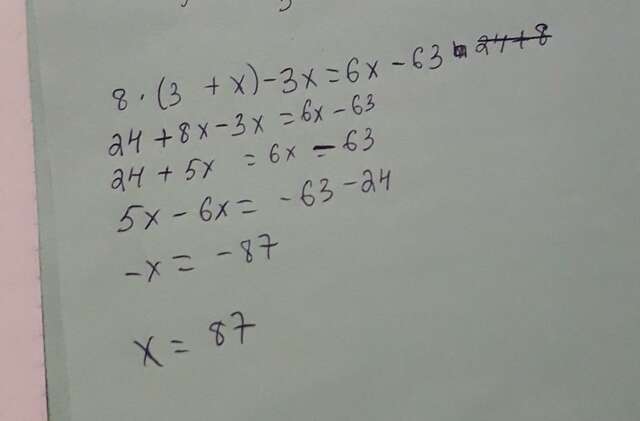 8 · (3 + x) - 3x = 6x - 63 24+8
24 + 8x - 3x = 6x - 63
24 + 5x = 6x - 63
5x - 6x = - 63 - 24
-x = - 87
x = 87